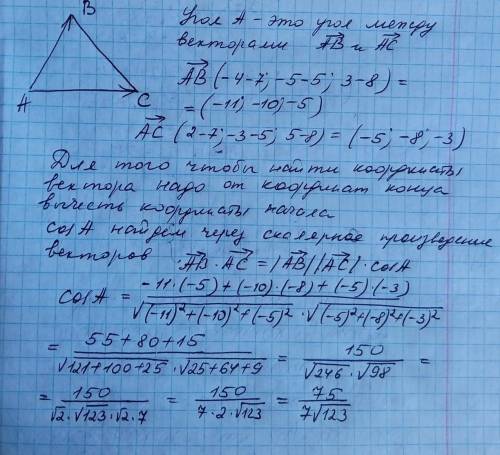 B
A
C
Угол A - это угол между
векторами \overrightarrow{AB} и \overrightarrow{AC}
\overrightarrow{AB} (-4-7; -5-5; 3-8) =
= (-11; -10; -5)
\overrightarrow{AC} (2-7; -3-5; 5-8) = (-5; -8; -3)
Для того чтобы найти координаты
вектора надо от координат конца
вычесть координаты начала
cosA найдём через скалярное произведение
векторов \overrightarrow{AB} · \overrightarrow{AC} = |\overrightarrow{AB}| |\overrightarrow{AC}| · cosA
cosA = \frac{-11·(-5)+(-10)·(-8)+(-5)·(-3)}{\sqrt{(-11)^2+(-10)^2+(-5)^2} · \sqrt{(-5)^2+(-8)^2+(-3)^2}}
= \frac{55+80+15}{\sqrt{121+100+25} · \sqrt{25+64+9}} = \frac{150}{\sqrt{246} · \sqrt{98}} =
= \frac{150}{\sqrt{2}·\sqrt{123}·\sqrt{2}·7} = \frac{150}{7·2·\sqrt{123}} = \frac{75}{7\sqrt{123}}